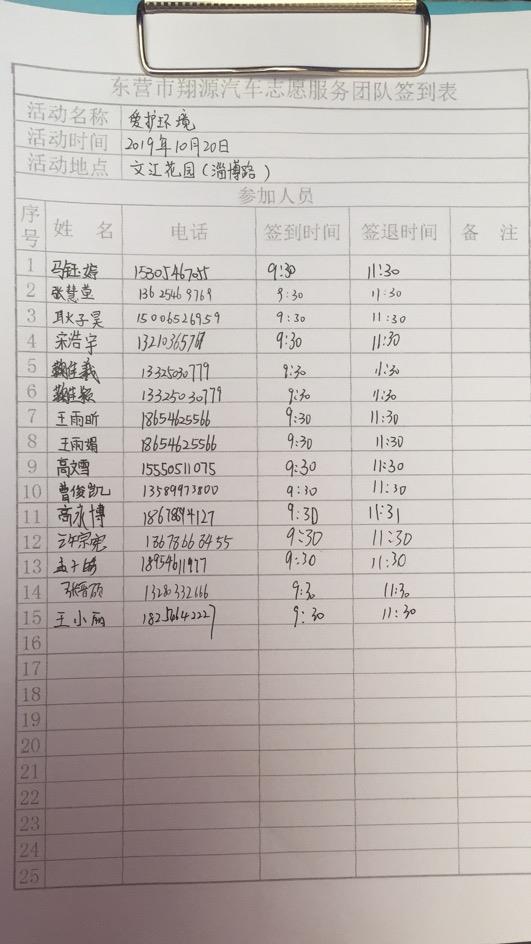 东营市翔源汽车志愿服务团队签到表
活动名称 爱护环境
活动时间 2019年10月20日
活动地点 文江花园(淄博路)
参加人员
序号 姓 名 电话 签到时间 签退时间 备 注
1 马钰婷 15305467055 9:30 11:30
2 张慧莹 13625469769 9:30 11:30
3 耿子昊 15006526959 9:30 11:30
4 宋浩宇 9:30 11:30
5 13325030779 9:30 11:30
6 13325030779 9:30 11:30
7 王雨昕 18654625566 9:30 11:30
8 王雨娟 18654625566 9:30 11:30
9 高雪 15550511075 9:30 11:30
10 曹俊凯 13589973800 9:30 11:30
11 高永博 9:30 11:31
12 许宗宪 9:30 11:30
13 9:30 11:30
14 9:30 11:30
15 王小丽 18256642227 9:30 11:30
16
17
18
19
20
21
22
23
24
25